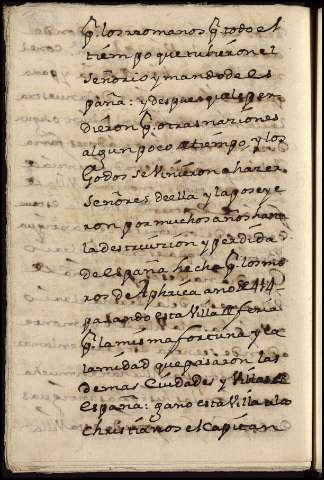 q̃ los rromanos q̃ todo el
tiempo que tubieron el
señorio y mando de es
paña: y despues que la per
dieron q̃ otras naziones
algun poco de tiempo, y los
Godos se vinieron a hazer
señores de ella y la poseye
ron por muchos años hasta
la destruizion y perdida
de España hecha q̃ los mo
ros de Aphrica año de 714
pasando esta Villa
q̃ la misma fortuna y ca
lamidad que pasaron las
demas Ciudades y Villas de
España: gano esta Villa a los
christianos el Capitan